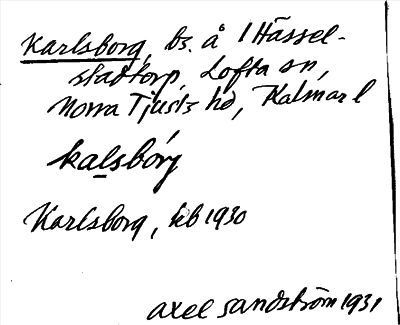 Karlsborg, bs. å 1 Hässel-
stadtorp, Lofta sn,
Norra Tjusts hd, Kalmar l
kalsbórg
Karlsborg, kb 1930
axel sandström 1931